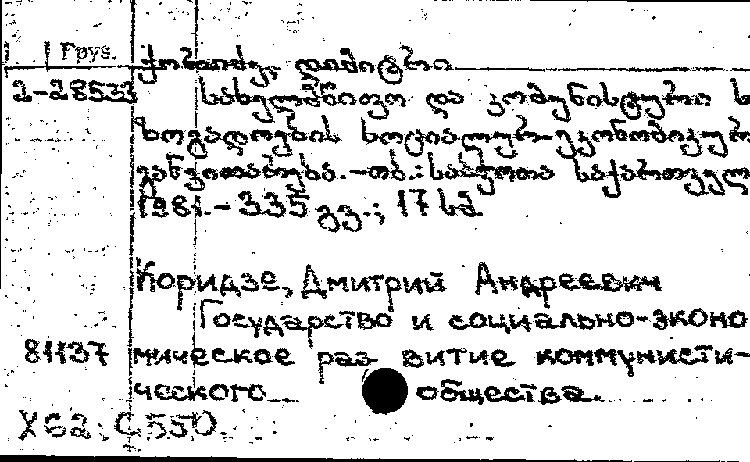 Груз.
ქორიძე, დიმიტრი
2-28533
სახელმწიფო და კომუნისტური ს
ზოგადოების სოციალურ-ეკონომიკურ
განვითარება.-თბ.: საბჭოთა საქართველ
1981.-335 გვ.; 17 სმ.
Коридзе, Дмитрий Андреевич
Государство и социально-эконо
81137 мическое раз витие коммунисти-
ческого общества.
X62.C550.